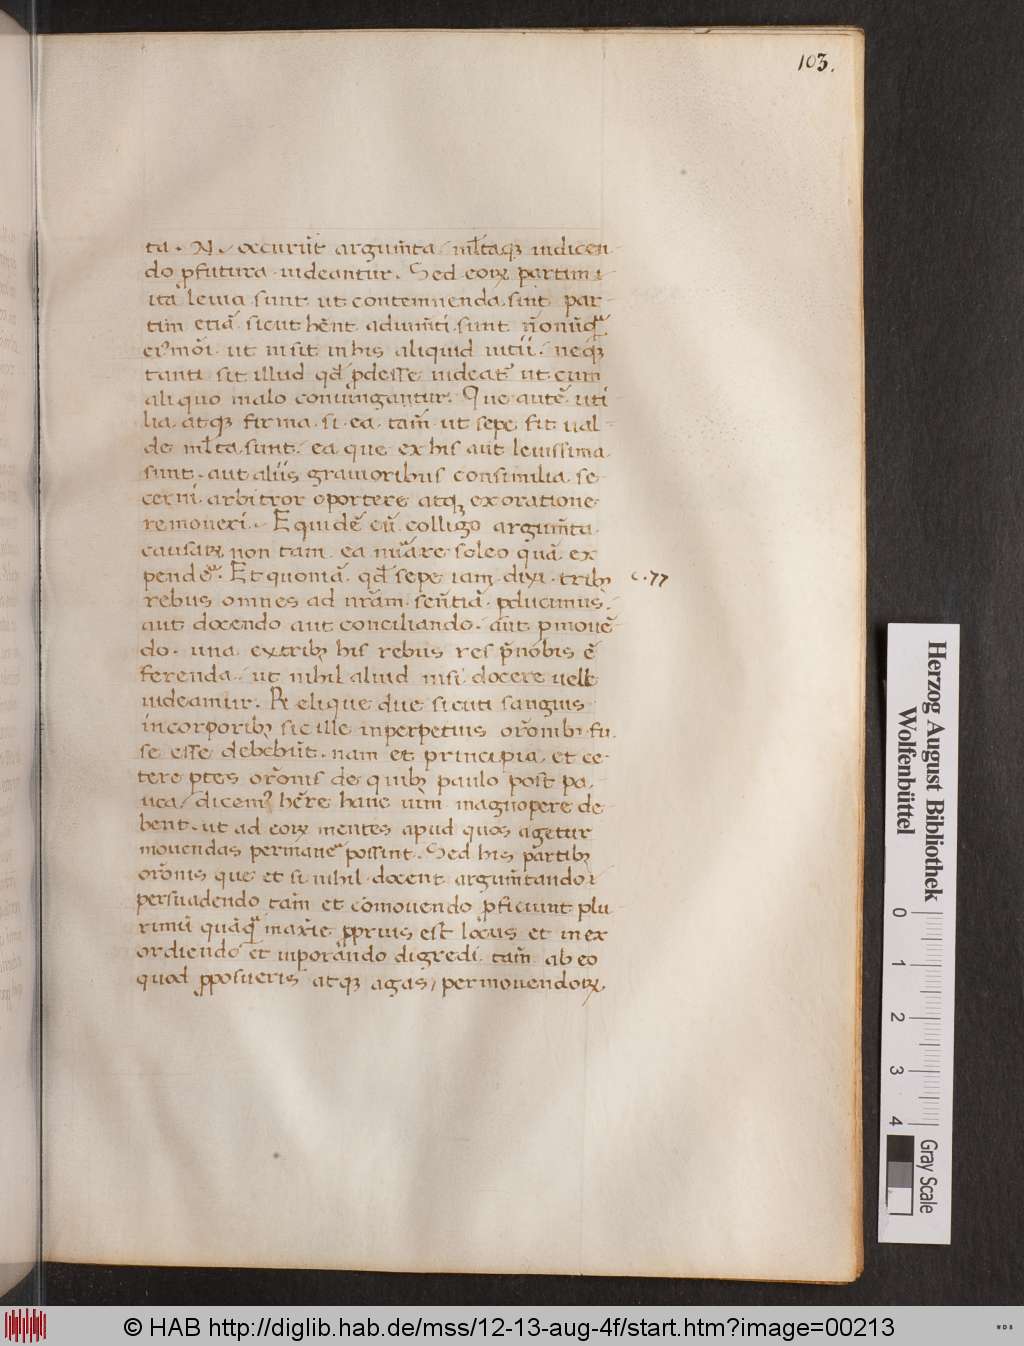 103.
ta. N. occurũt argum̃ta / ml̃taq; indicen-
do ꝓfutura uideantur. Sed eoꝝ partim
ita leuia sunt ut contemnenda sint par-
tim etiã sicut hẽnt adium̃ti sunt ñonũq̃
eiꝰmõi ut insit inhis aliquid uitii. neq;
tanti sit illud qd̃ ꝓdesse uideatᷣ ut cum
aliquo malo coniũngantur. Que autẽ uti
lia atq; firma si ea tam̃ ut sepe fit ual-
de ml̃ta sunt. ea que ex his aut leuissima
sunt. aut aliis grauioribus consimilia se-
cerni arbitror oportere atq; ex oratione
remoueri. Equidẽ cũ colligo argum̃ta
causaꝝ non tam ea nũare soleo quã ex
pendẽ. Et quoniã qd̃ sepe iam dixi trib; c.77
rebus omnes ad nrãm sen̄tiã ꝓducimus.
aut docendo aut conciliando. aut ꝑmouẽ-
do. una extrib; his rebus res p̃nobis ẽ
ferenda. ut nihil aliud nisi docere uelle
uideamur. Relique due sicuti sanguis
incorporib; sic ille inperpetuis orõnib; fu-
se esse debebũt. nam et principia et ce-
tere ꝑtes orõnis de quib; paulo post pa-
uca / dicemꝰ hẽre hanc uim magnopere de
bent. ut ad eoꝝ mentes apud quos agetur
mouendas permanẽ possint. Sed his partib;
orõnis que et si nihil docent argum̃tando
persuadendo tam̃ et cõmouendo ꝓficiunt plu
rimũ quãq̃ maxĩe ꝓprius est locus et in ex
ordiendo et inporãndo digredi tam̃ ab eo
quod ꝓposueris atq; agas / permouendoꝝ
Herzog August Bibliothek
Wolfenbüttel
0 1 2 3 4
Gray Scale
© HAB http://diglib.hab.de/mss/12-13-aug-4f/start.htm?image=00213